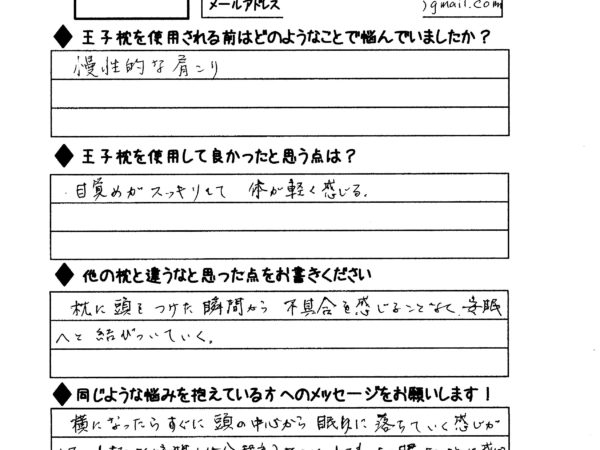 メールアドレス
)gmail.com
◆ 王子枕を使用される前はどのようなことで悩んでいましたか？
慢性的な肩こり
◆ 王子枕を使用して良かったと思う点は？
目覚めがスッキリして 体が軽く感じる。
◆ 他の枕と違うなと思った点をお書きください
枕に頭をつけた瞬間から 不具合を感じることなく、安眠
へと結びついていく。
◆ 同じような悩みを抱えている方へのメッセージをお願いします！
横になったらすぐに頭の中心から眠りに落ちていく感じが